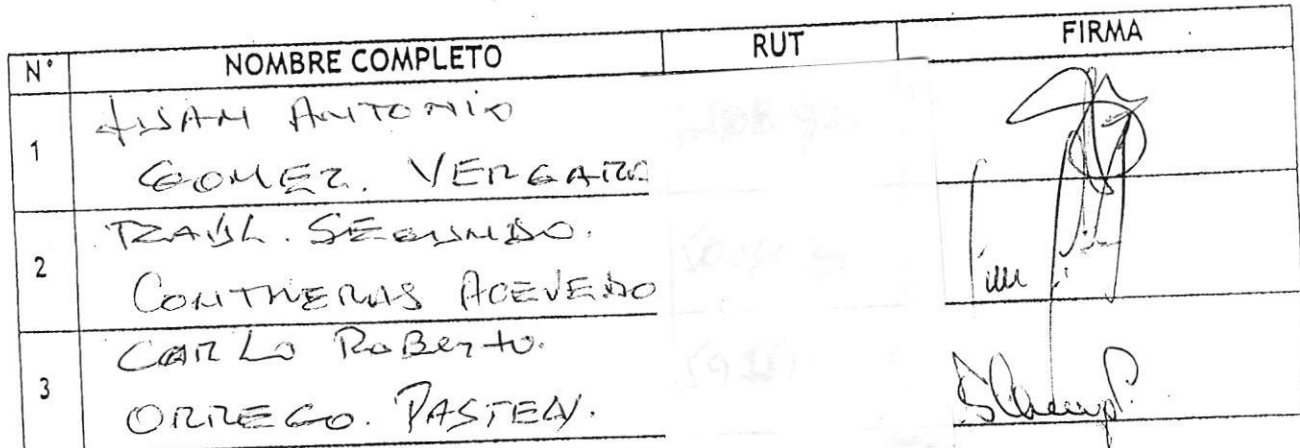 N° NOMBRE COMPLETO RUT FIRMA
1 JUAN ANTONIO
GOMEZ. VERGARA
2 RAUL. SEGUNDO.
CONTRERAS ACEVEDO
3 CARLO ROBERTO.
ORREGO. PASTEN.